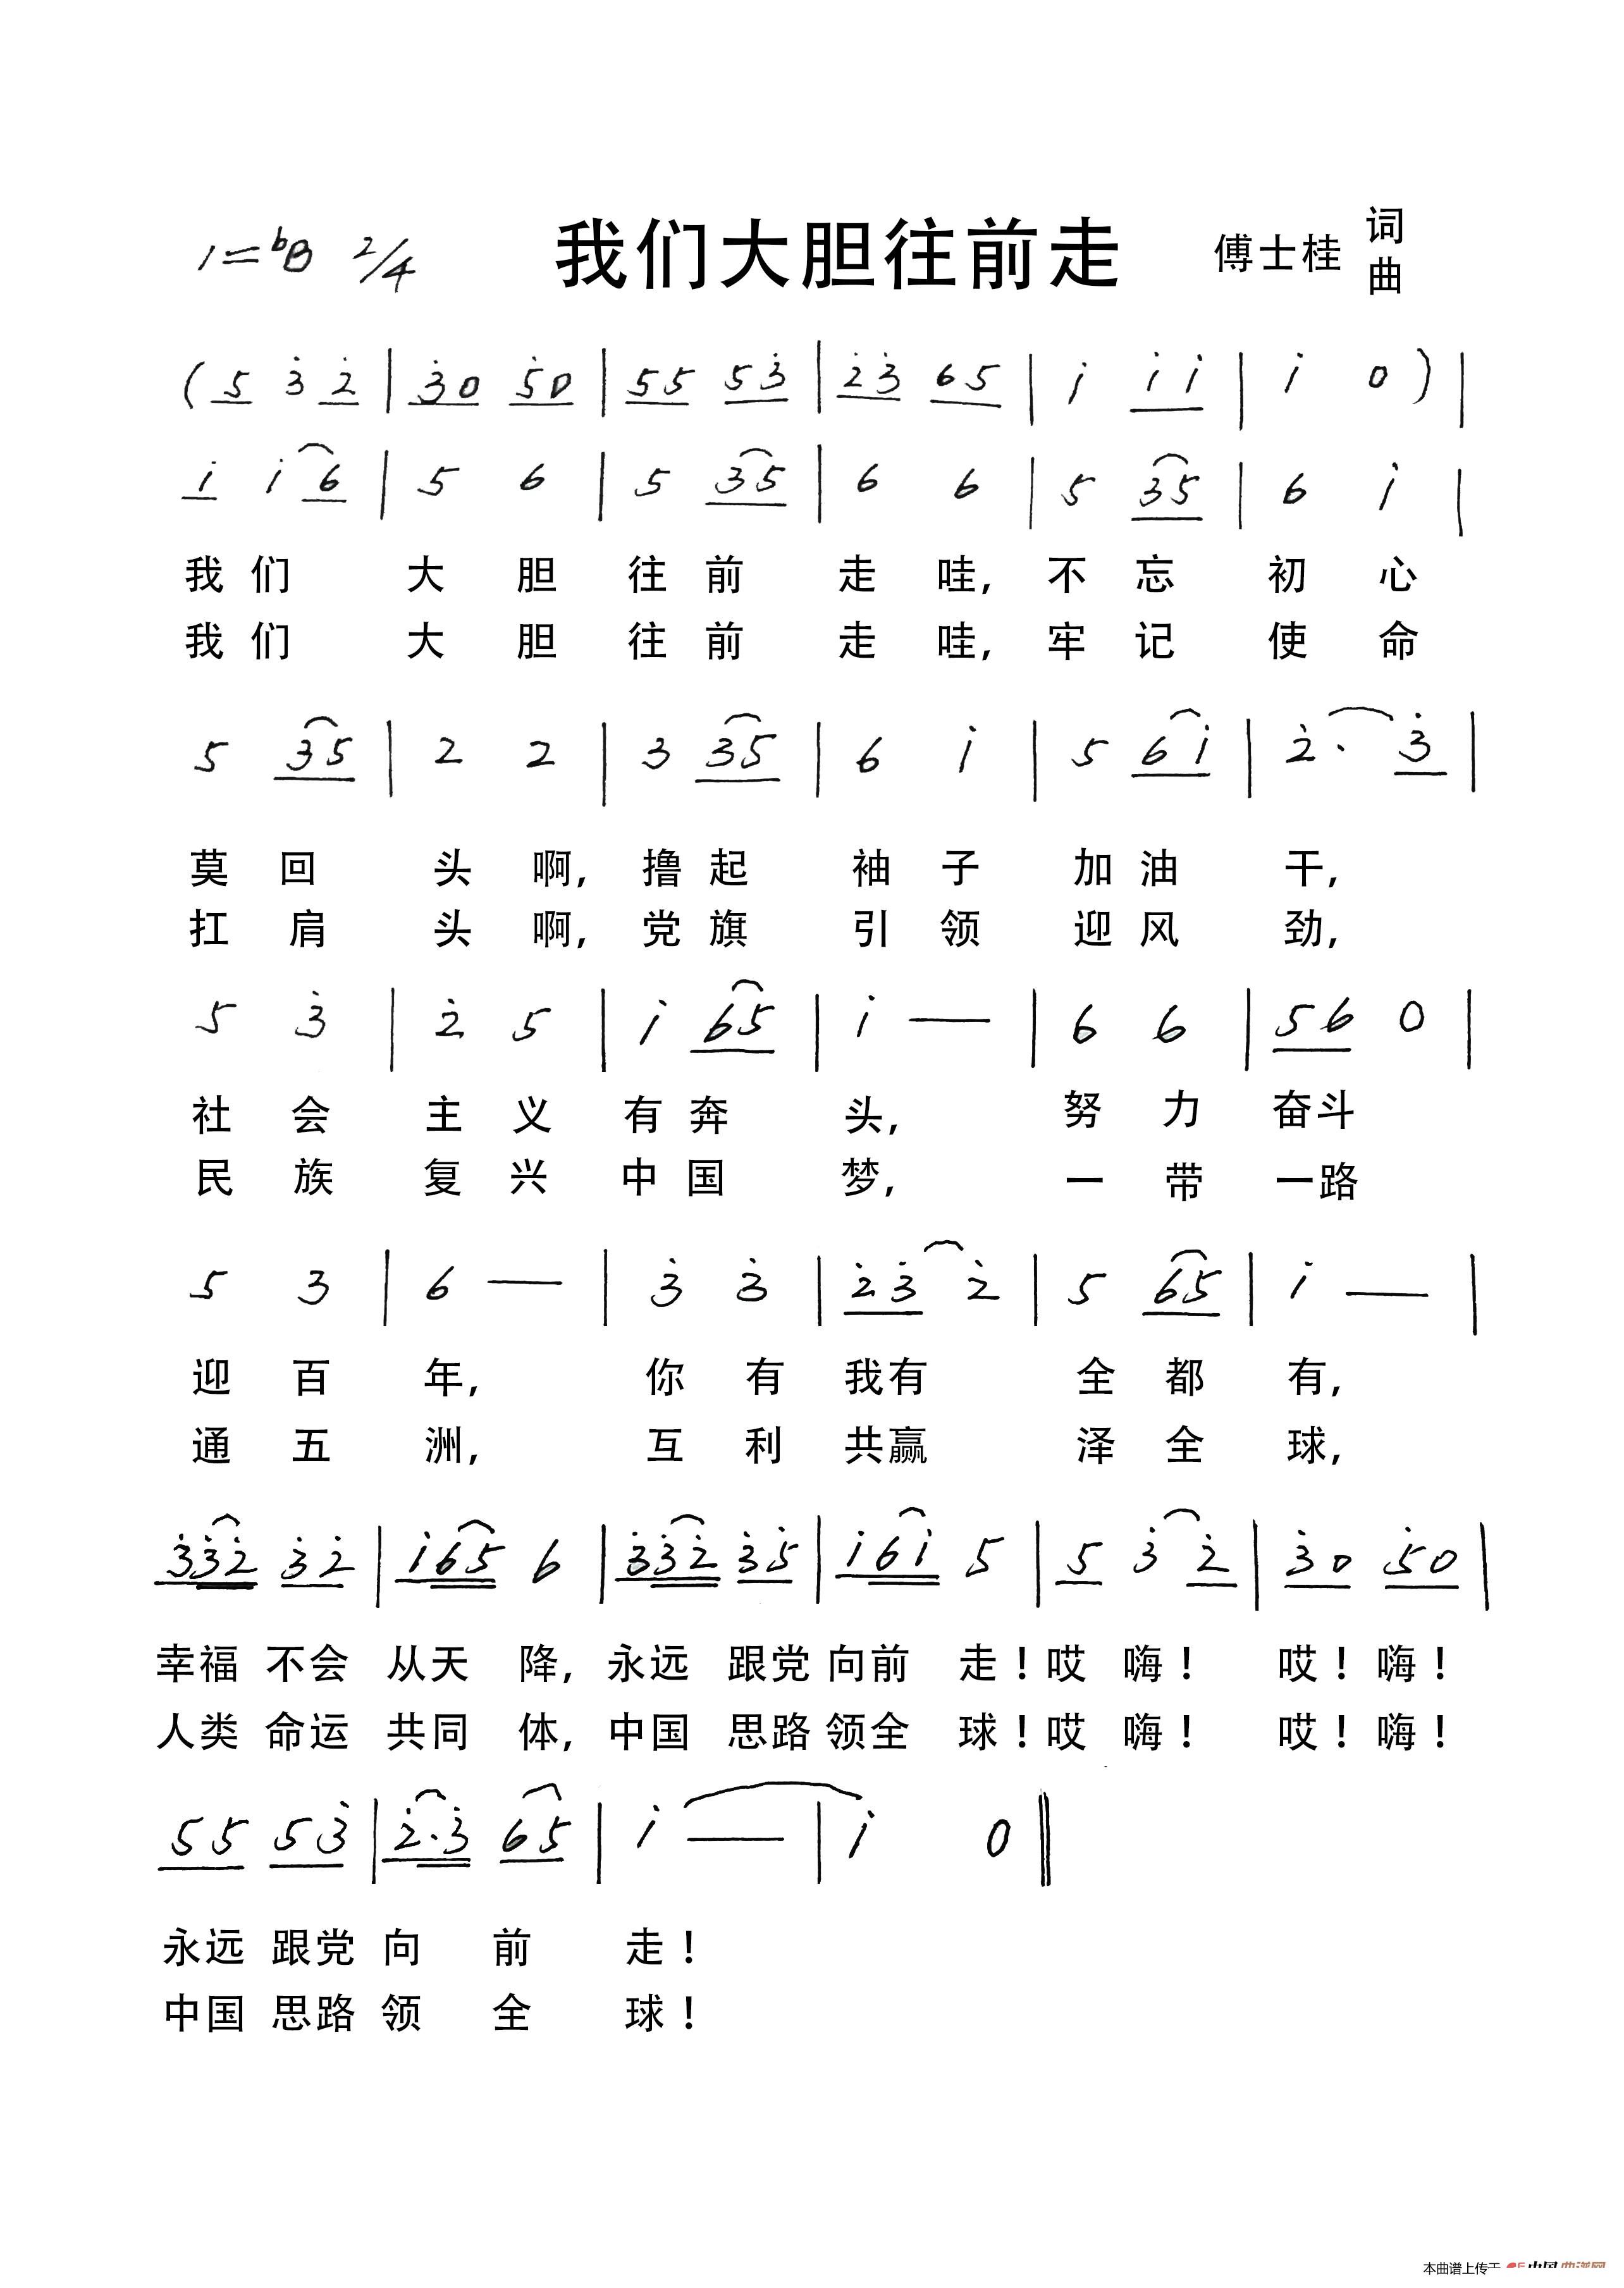 1=bB 2/4 我们大胆往前走 傅士桂 词曲
(5 3̇ 2̇ | 3̇0 5̇0 | 55 53̇ | 2̇3̇ 65 | 1̇ 1̇1̇ | 1̇ 0) |
1̇ 1̇ 6 | 5 6 | 5 35 | 6 6 | 5 35 | 6 1̇ |
我们 大 胆 往 前 走 哇, 不 忘 初 心
我们 大 胆 往 前 走 哇, 牢 记 使 命
5 35 | 2 2 | 3 35 | 6 1̇ | 5 61̇ | 2̇· 3̇ |
莫 回 头 啊, 撸 起 袖 子 加 油 干,
扛 肩 头 啊, 党 旗 引 领 迎 风 劲,
5 3̇ | 2̇ 5 | 1̇ 65 | 1̇ — | 6 6 | 56 0 |
社 会 主 义 有 奔 头, 努 力 奋斗
民 族 复 兴 中 国 梦, 一 带 一路
5 3 | 6 — | 3̇ 3̇ | 2̇3̇ 2̇ | 5 65 | 1̇ — |
迎 百 年, 你 有 我有 全 都 有,
通 五 洲, 互 利 共赢 泽 全 球,
3̇3̇2̇ 3̇2̇ | 1̇65 6 | 3̇3̇2̇ 3̇5̇ | 1̇61̇ 5 | 5 3̇ 2̇ | 3̇0 5̇0 |
幸福 不会 从天 降, 永远 跟党 向前 走！哎 嗨！ 哎！嗨！
人类 命运 共同 体, 中国 思路 领全 球！哎 嗨！ 哎！嗨！
55 53̇ | 2̇·3̇ 65 | 1̇ — | 1̇ 0 ||
永远 跟党 向 前 走！
中国 思路 领 全 球！
本曲谱上传于